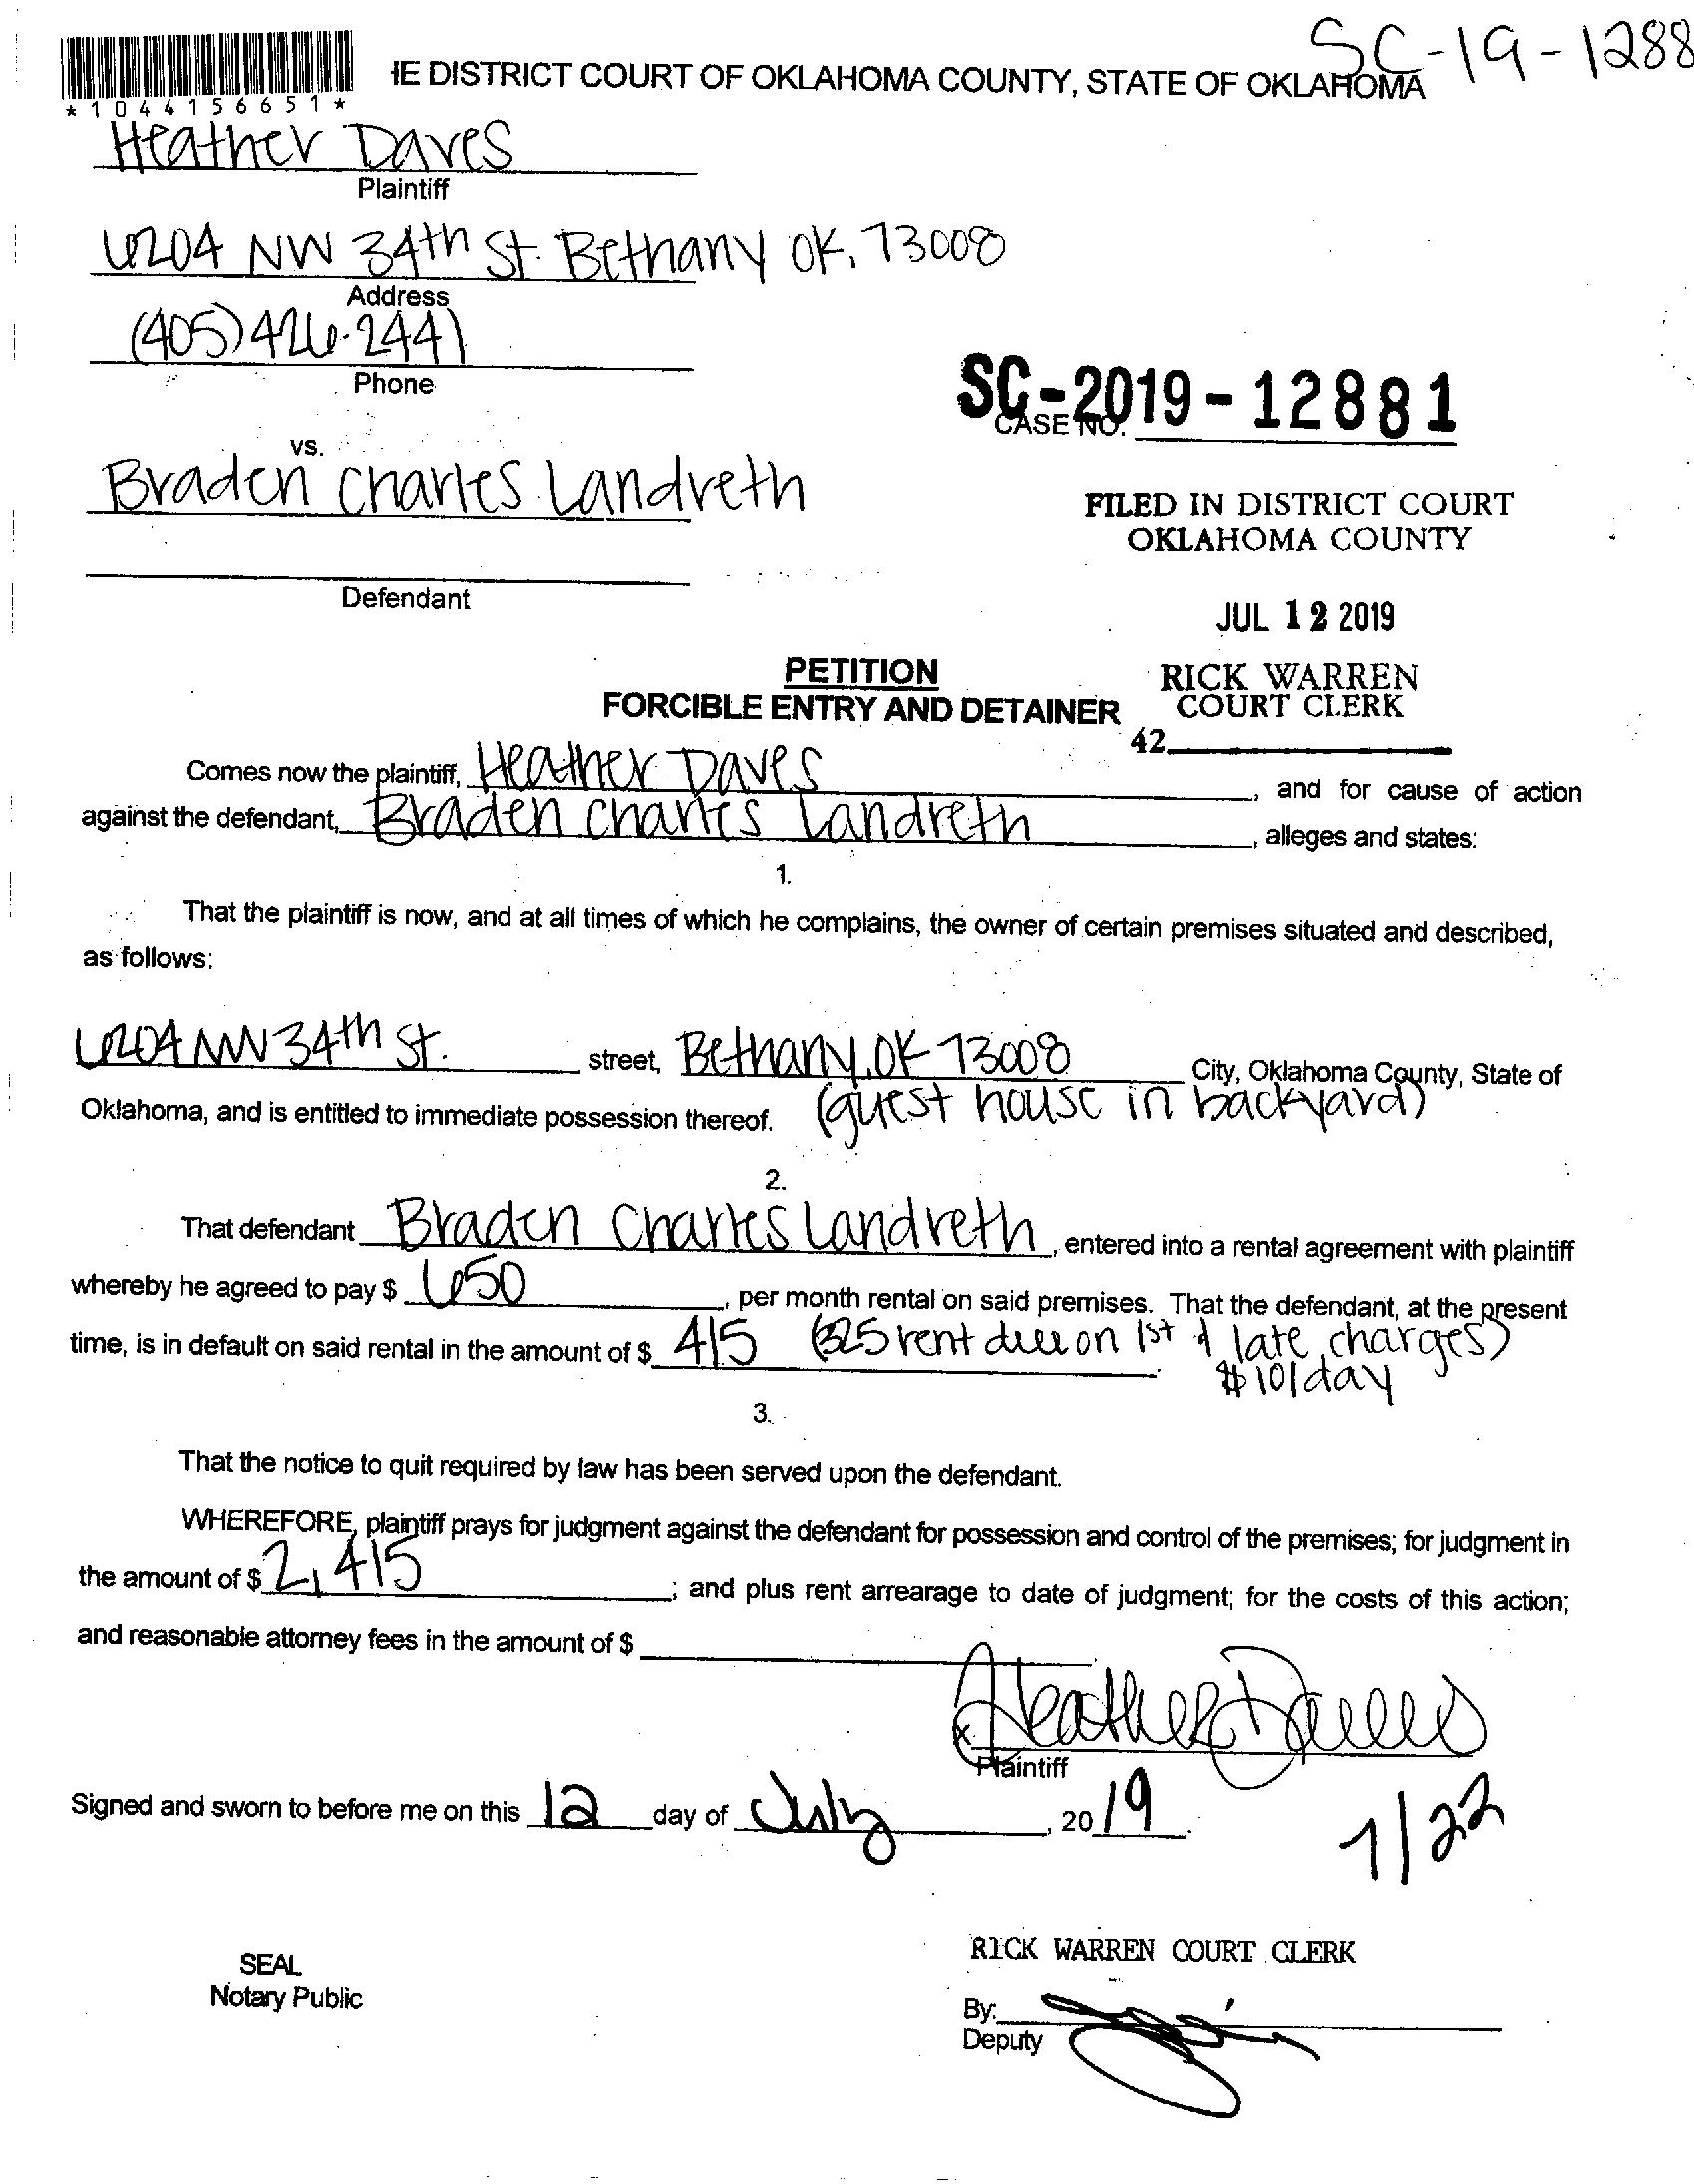 SC-19-1288
IE DISTRICT COURT OF OKLAHOMA COUNTY, STATE OF OKLAHOMA
*1044156651*
Heather Daves
Plaintiff
6204 NW 34th St. Bethany OK, 73008
Address
(405) 426-2441
Phone
SC-2019-12881
CASE NO.
vs.
Braden Charles Landreth
FILED IN DISTRICT COURT
OKLAHOMA COUNTY
Defendant
JUL 12 2019
PETITION
FORCIBLE ENTRY AND DETAINER
RICK WARREN
COURT CLERK
42
Comes now the plaintiff, Heather Daves, and for cause of action
against the defendant, Braden Charles Landreth, alleges and states:
1.
That the plaintiff is now, and at all times of which he complains, the owner of certain premises situated and described,
as follows:
6204 NW 34th St. street, Bethany, OK 73008 City, Oklahoma County, State of
Oklahoma, and is entitled to immediate possession thereof. (guest house in backyard)
2.
That defendant Braden Charles Landreth, entered into a rental agreement with plaintiff
whereby he agreed to pay $ 650, per month rental on said premises. That the defendant, at the present
time, is in default on said rental in the amount of $ 415 (325 rent due on 1st & late charges)
$10/day
3.
That the notice to quit required by law has been served upon the defendant.
WHEREFORE, plaintiff prays for judgment against the defendant for possession and control of the premises; for judgment in
the amount of $ 2,415; and plus rent arrearage to date of judgment; for the costs of this action;
and reasonable attorney fees in the amount of $
x Heather Daves
Plaintiff
Signed and sworn to before me on this 12 day of July, 2019.
7/22
RICK WARREN COURT CLERK
SEAL
Notary Public
By:
Deputy